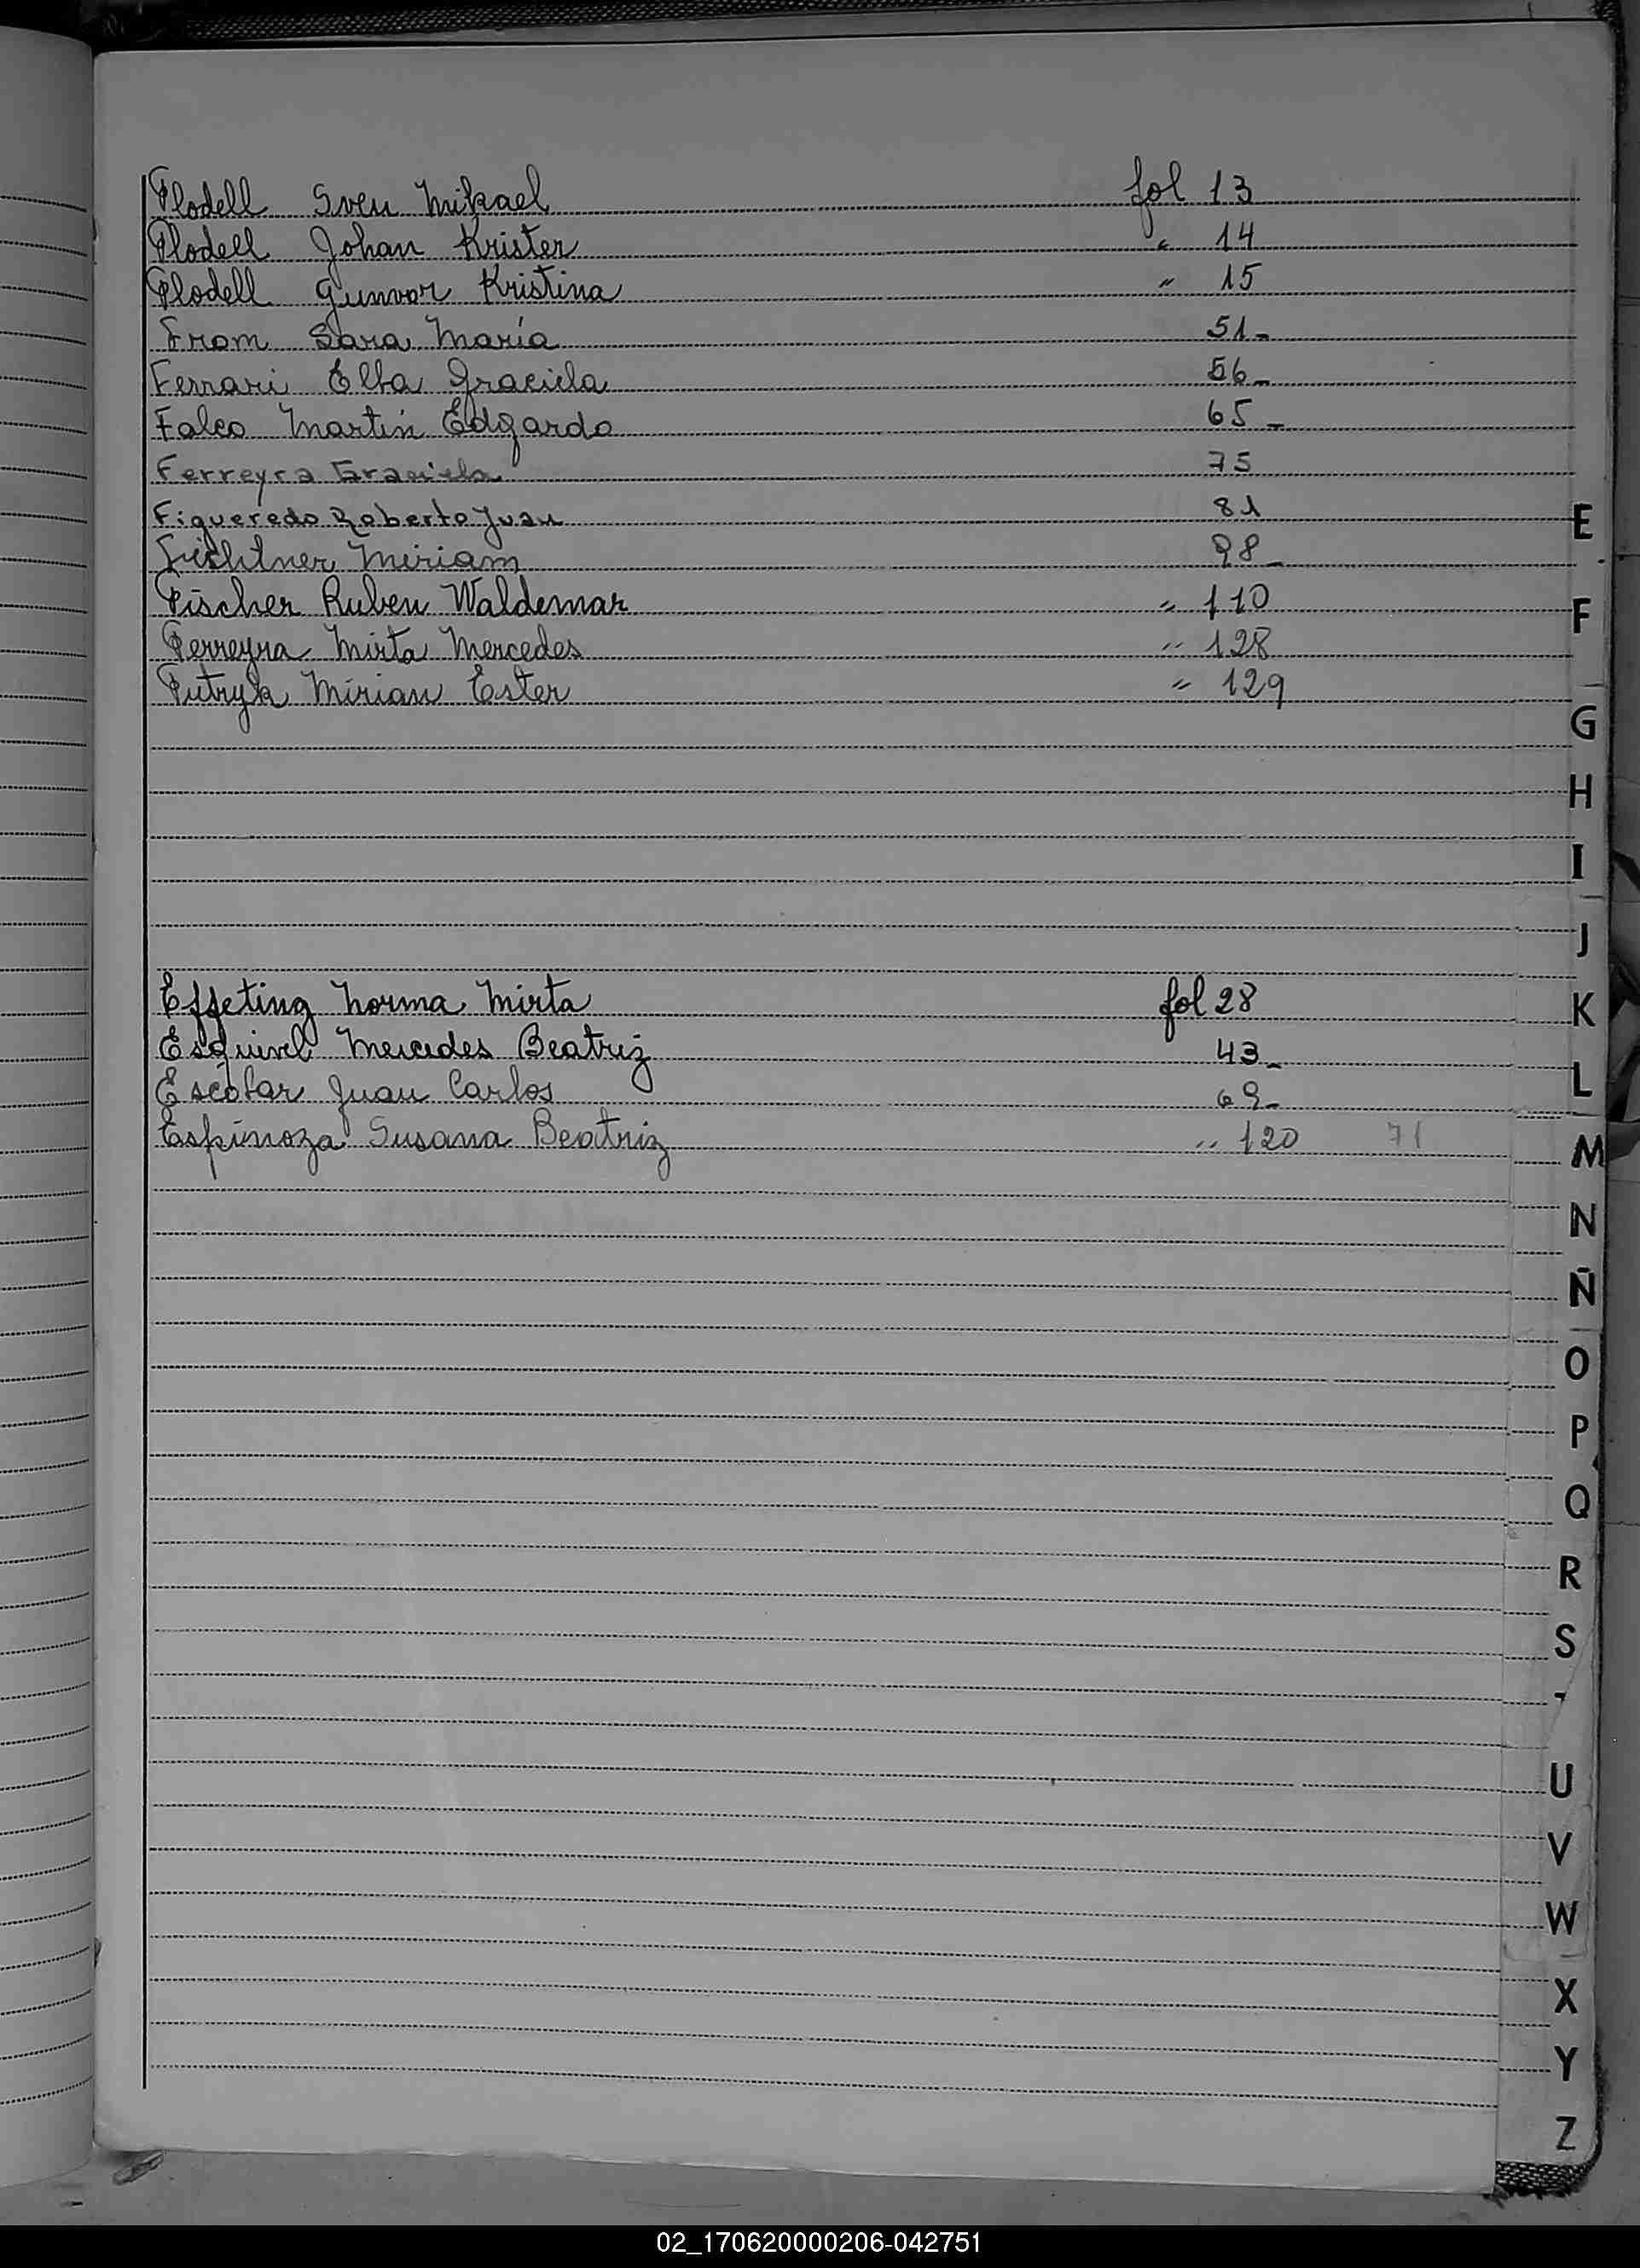 Flodell Sven Mikael fol 13
Flodell Johan Krister " 14
Flodell Gunvor Kristina " 15
From Sara María 51_
Ferrari Elba Graciela 56_
Falco Martín Edgardo 65_
Ferreyra Graciela 75
Figueredo Roberto Juan 81
Fichtner Miriam 98_
Fischer Ruben Waldemar " 110
Ferreyra Mirta Mercedes " 128
Futryk Mirian Ester " 129
Effeting Norma Mirta fol 28
Esquivel Mercedes Beatriz 43_
Escobar Juan Carlos 69_
Espinoza Susana Beatriz " 120 71
E
F
G
H
I
J
K
L
M
N
Ñ
O
P
Q
R
S
U
V
W
X
Y
Z
02_170620000206-042751